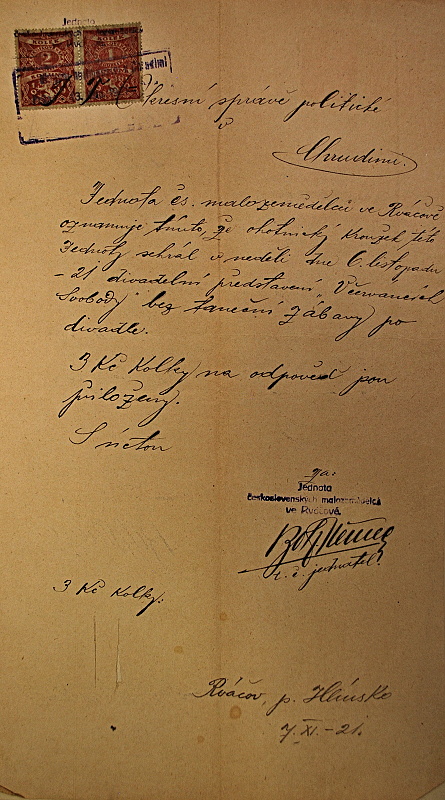 Jednota
KOLEK KOLEK
2 1
Okresní správě politické
v
Chrudimi.
Jednota čs. malozemědělců ve Rváčově
oznamuje tímto, že ochotnický kroužek této
Jednoty sehrál v neděli dne 6. listopadu
-21 divadelní představení „V červáncích
Svobody" bez taneční zábavy po
divadle.
3 Kč kolky na odpověď jsou
přiloženy.
S úctou
za:
Jednota
československých malozemědělců
ve Rváčově.
t. č. jednatel.
3 Kč kolky.
Rváčov, p. Hlinsko
7. XI. - 21.